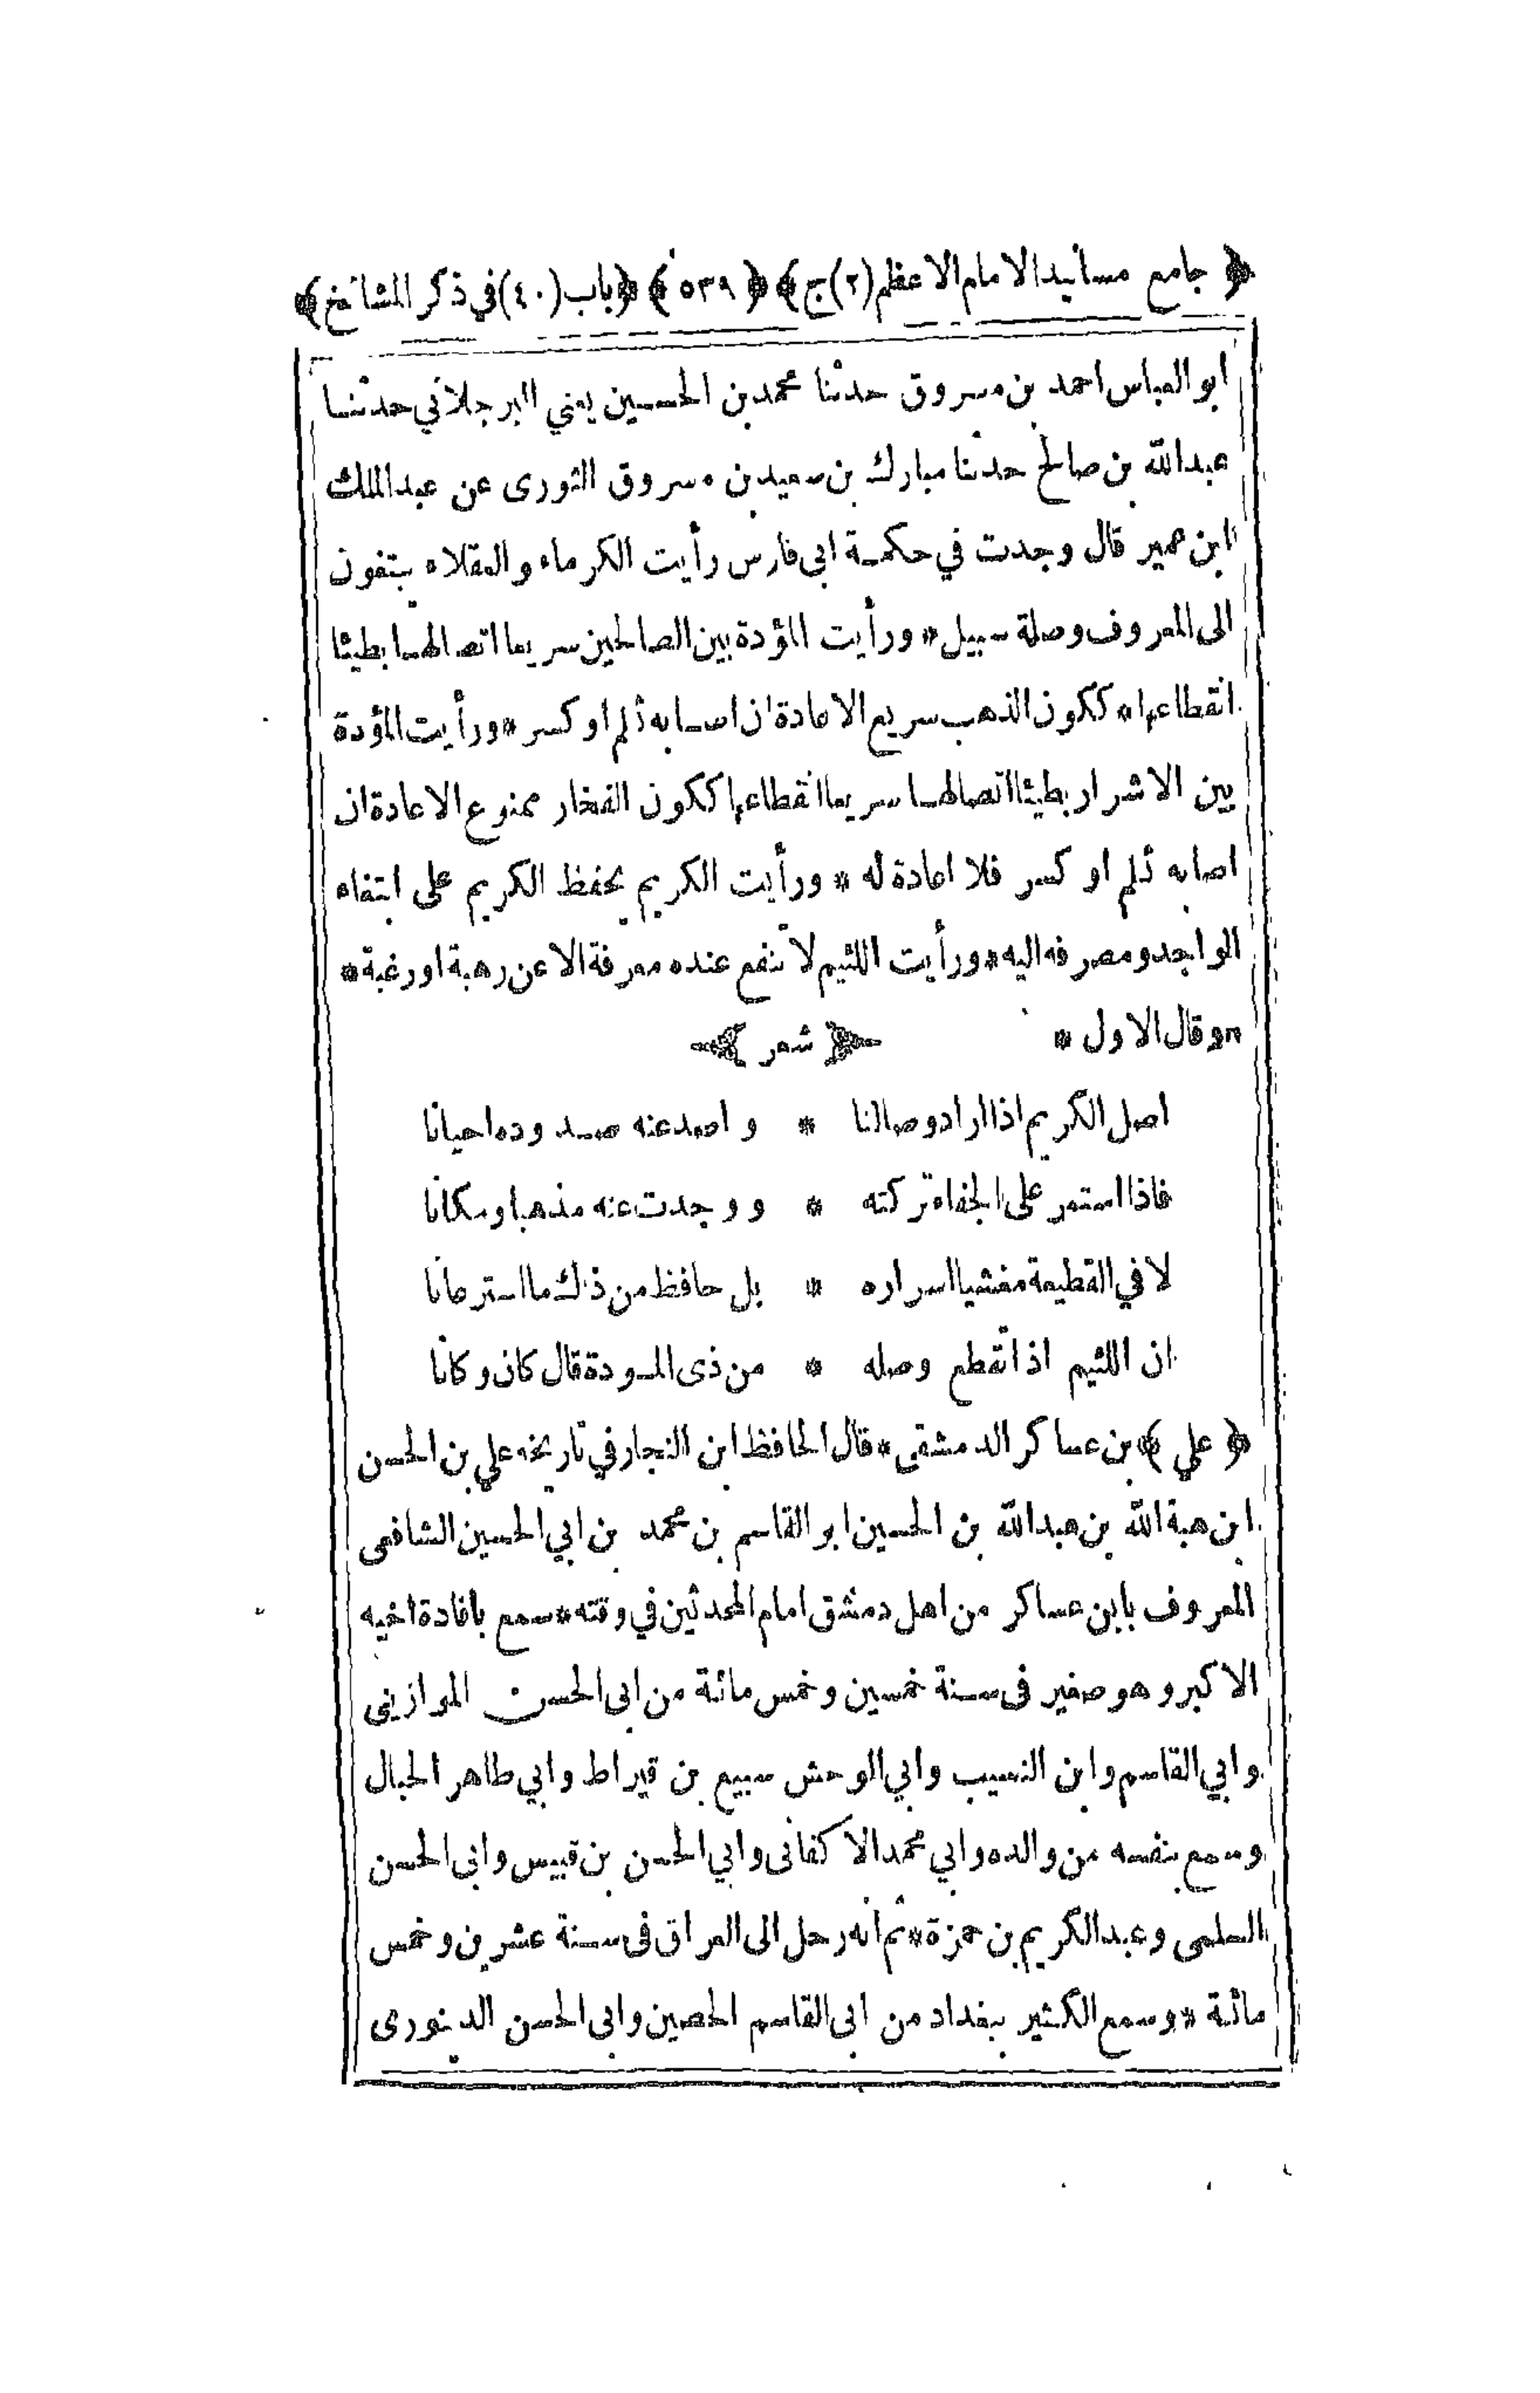 ﴿ جامع مسانيد الامام الاعظم (٢) ج ﴾ ﴿ ٥٣٩ ﴾ ﴿ باب (٤٠) في ذكر المشائخ ﴾
ابو العباس احمد بن مسروق حدثنا محمد بن الحسين يعني البرجلاني حدثنا
عبد الله بن صالح حدثنا مبارك بن سعيد بن مسروق الثورى عن عبد الملك
ابن عمير قال وجدت في حكمة ابى فارس رأيت الكرماء والعقلاء يبتغون
الى المعروف وصلة سبيل * ورأيت المؤدة بين الصالحين سريعا اتصالها بطيئا
انقطاعها * ككون الذهب سريع الاعادة ان اصابه ثلم او كسر * ورأيت المؤدة
بين الاشرار بطيئا اتصالها سريعا انقطاعها ككون الفخار ممنوع الاعادة ان
اصابه ثلم او كسر فلا اعادة له * ورأيت الكريم يحفظ الكريم على ابتغاء
الواجد ومصرفه اليه * ورأيت اللئيم لا تنفع عنده معرفة الا عن رهبة او رغبة *
* وقال الاول * ﴿ شعر ﴾
اصل الكريم اذا اراد وصالنا * واصد عنه صدوده احيانا
فاذا استمر على الجفاء تركته * ووجدت عنه مذهبا ومكانا
لا في القطيعة مفشيا اسراره * بل حافظ من ذاك ما استرعانا
ان اللئيم اذا تقطع وصله * من ذى المودة قال كان وكانا
﴿ علي ﴾ بن عساكر الدمشقى * قال الحافظ ابن النجار في تاريخه علي بن الحسن
ابن هبة الله بن عبد الله بن الحسين ابو القاسم بن محمد بن ابي الحسين الشافعى
المعروف بابن عساكر من اهل دمشق امام المحدثين في وقته * سمع بافادة اخيه
الاكبر وهو صغير فى سنة خمسين وخمس مائة من ابى الحسن الموازينى
وابي القاسم وابن النسيب وابي الوحش سبيع بن قيراط وابي طاهر الحبال
وسمع بنفسه من والده وابي محمد الاكفانى وابي الحسن بن قبيس وابى الحسن
السلمى وعبد الكريم بن حمزة * ثم انه رحل الى العراق فى سنة عشرين وخمس
مائة * وسمع الكثير ببغداد من ابى القاسم الحصين وابى الحسن الدينورى